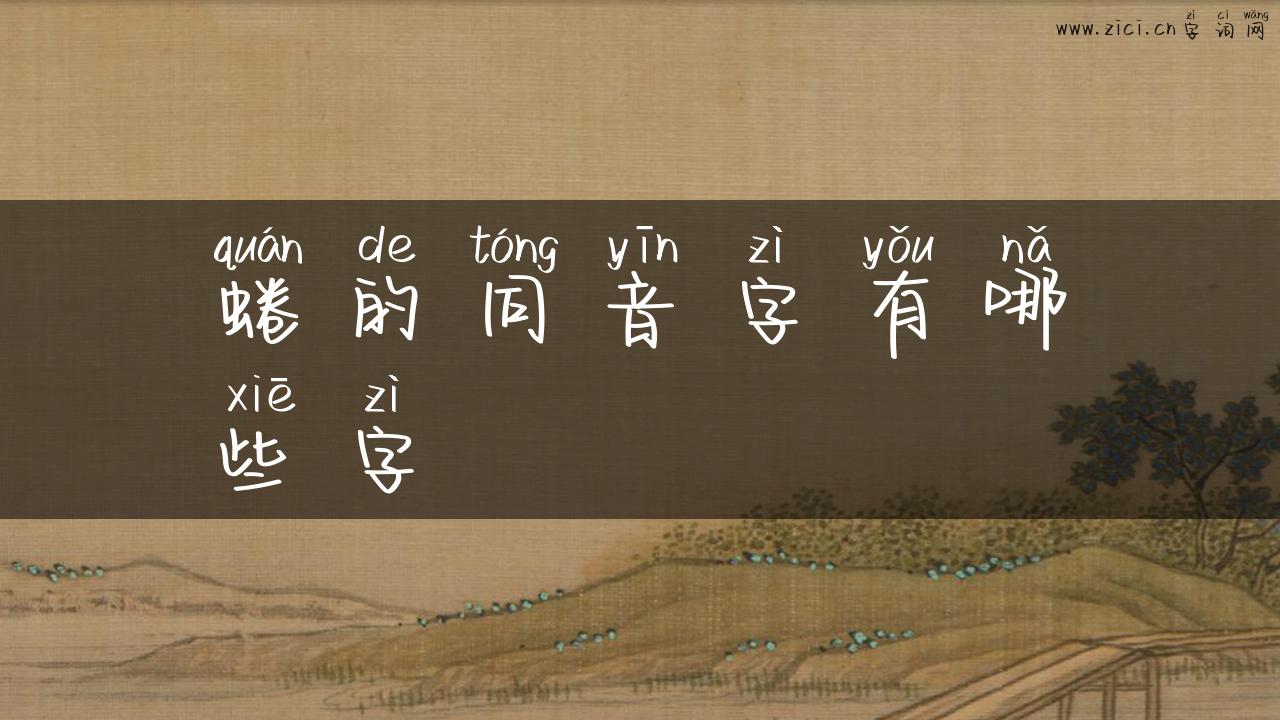 zì cí wǎng
www.zici.cn字词网
quán de tóng yīn zì yǒu nǎ
蜷的同音字有哪
xiē zì
些字